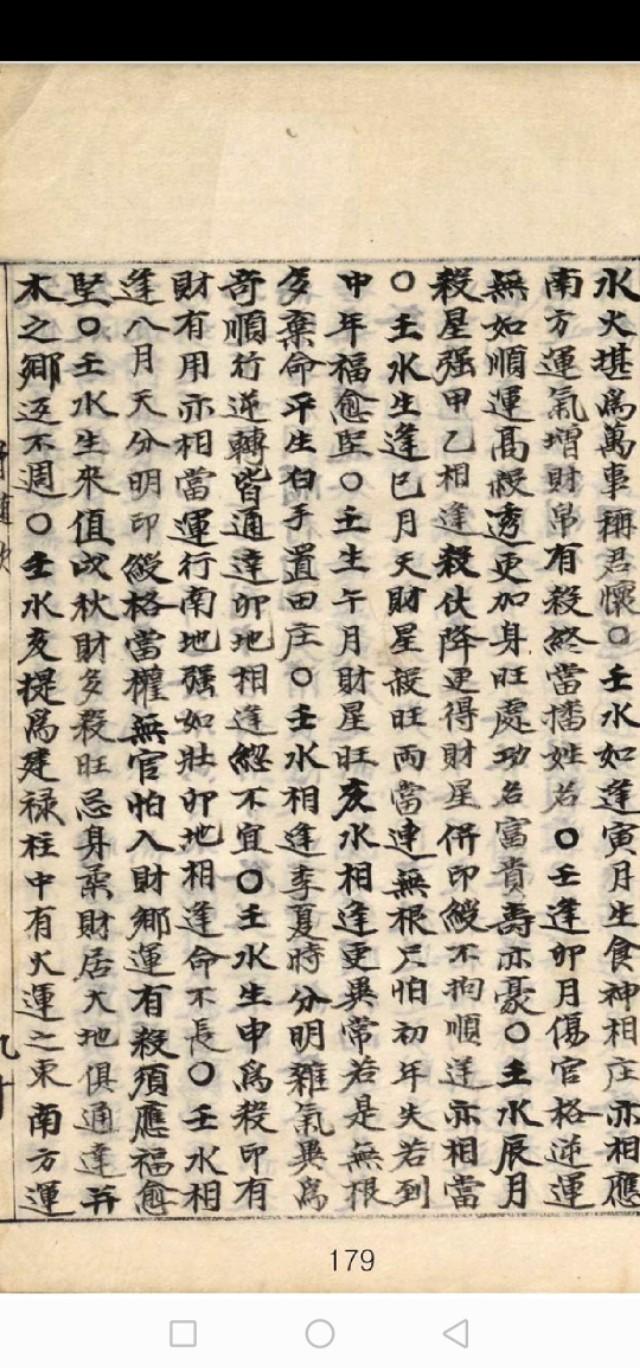 水火堪為萬事稱君懷〇壬水如逢寅月生食神相庄亦相應
南方運氣增財帛有殺終當播姓名〇壬逢卯月傷官格逆運
無如順運高殺透更加身旺處功名富貴壽亦豪〇壬水辰月
殺星强甲乙相逢殺伏降更得財星併印綬不拘順逆亦相當
〇壬水生逢巳月天財星殺旺両當連無根只怕初年失若到
申年福愈堅〇壬生午月財星旺亥水相逢更異常若是無根
多棄命平生白手置田庄〇壬水相逢季夏時分明雜氣異為
奇順行逆轉皆通達卯地相逢緫不宜〇壬水生申為殺印有
財有用亦相當運行南地强如壯卯地相逢命不長〇壬水相
逢八月天分明印綬格當權無官怕入財鄉運有殺須應福愈
堅〇壬水生來值戌秋財多殺旺忌身柔財居大地俱通達弄
木之鄉返不週〇壬水亥提為建禄柱中有火運之東南方運
179